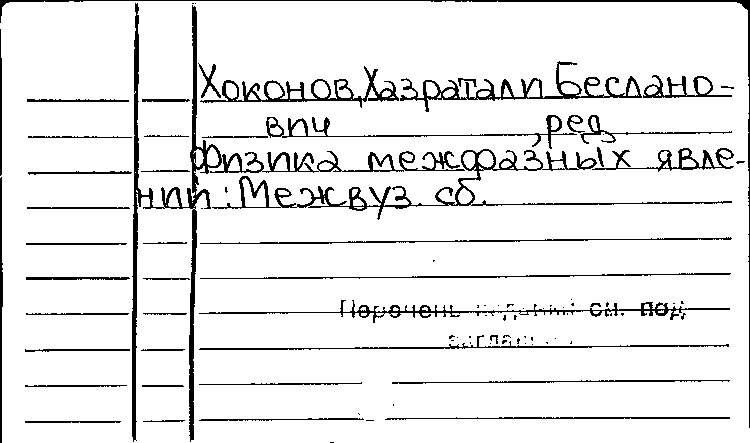 Хоконов, Хазратали Беслано-
вич , ред
Физика межфазных явле-
ний : Межвуз. сб.
Перечень изданий см. под
заглав